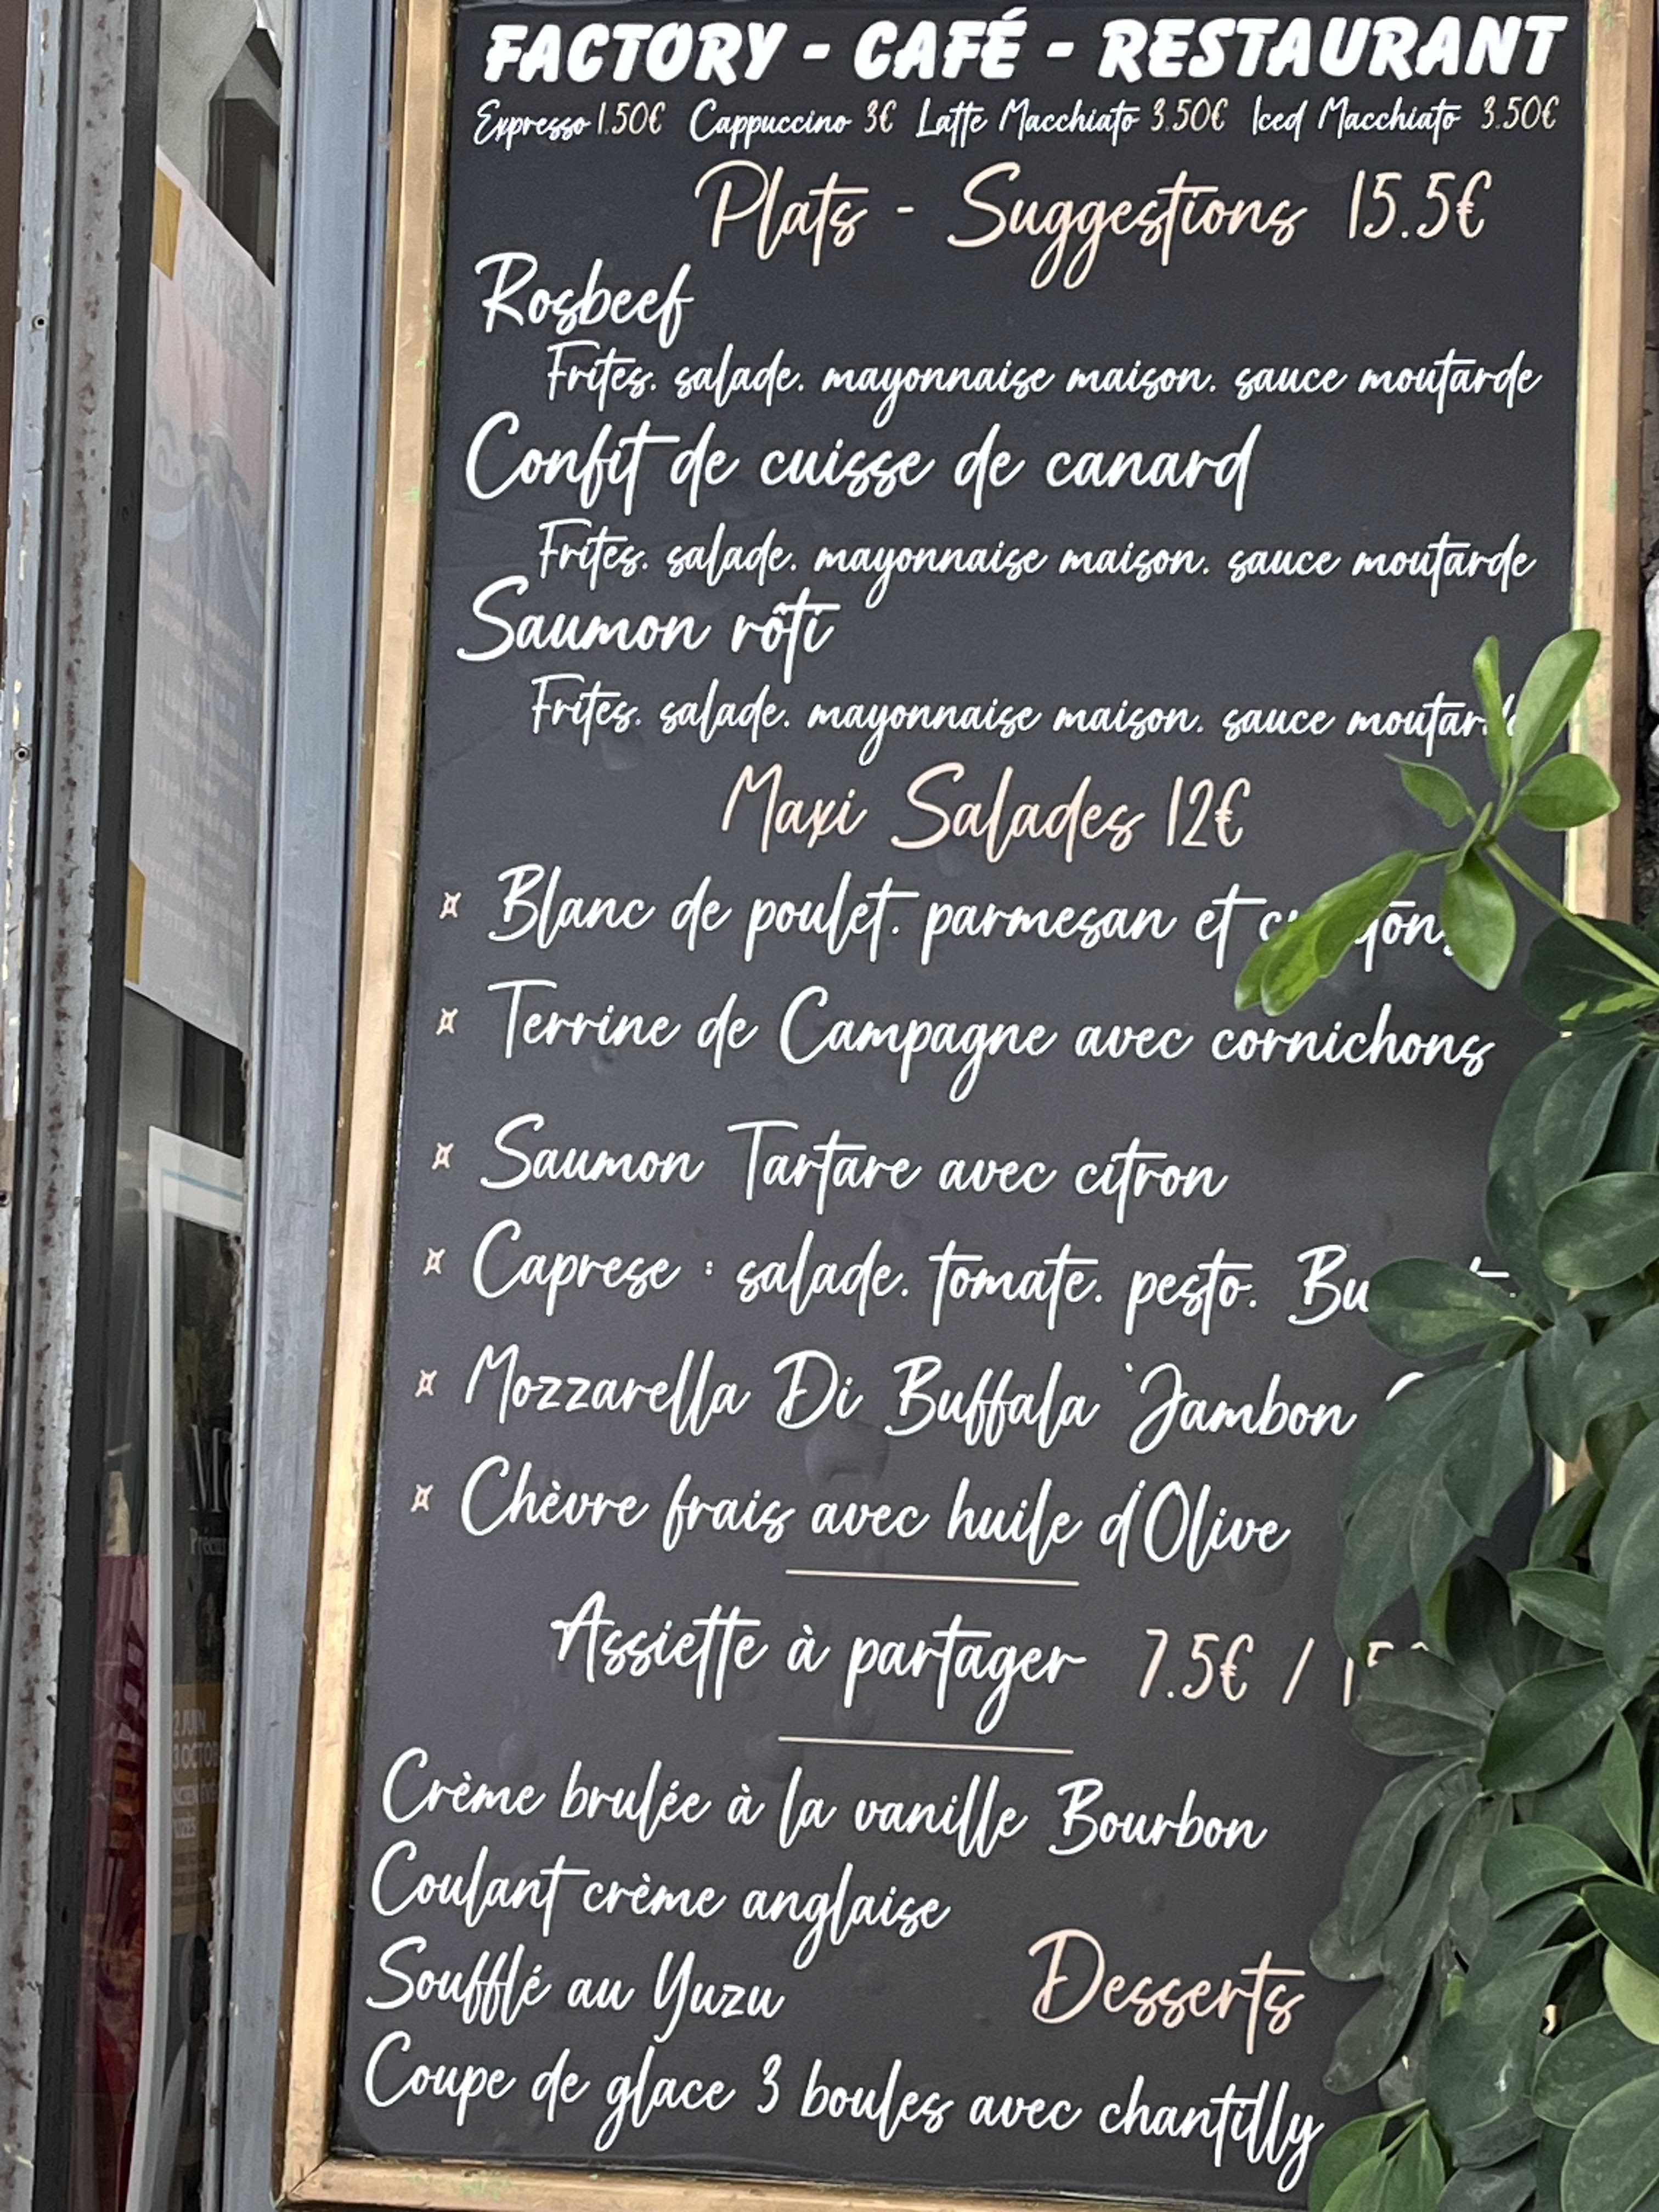 FACTORY - CAFÉ - RESTAURANT
Expresso 1.50€ Cappuccino 3€ Latte Macchiato 3.50€ Iced Macchiato 3.50€
Plats - Suggestions 15.5€
Rosbeef
Frites. salade. mayonnaise maison. sauce moutarde
Confit de cuisse de canard
Frites. salade. mayonnaise maison. sauce moutarde
Saumon rôti
Frites. salade. mayonnaise maison. sauce moutarde
Maxi Salades 12€
¤ Blanc de poulet. parmesan et
¤ Terrine de Campagne avec cornichons
¤ Saumon Tartare avec citron
¤ Caprese : salade. tomate. pesto.
¤ Mozzarella Di Buffala Jambon
¤ Chèvre frais avec huile d'Olive
Assiette à partager 7.5€ /
Crème brulée à la vanille Bourbon
Coulant crème anglaise
Soufflé au Yuzu
Desserts
Coupe de glace 3 boules avec chantilly